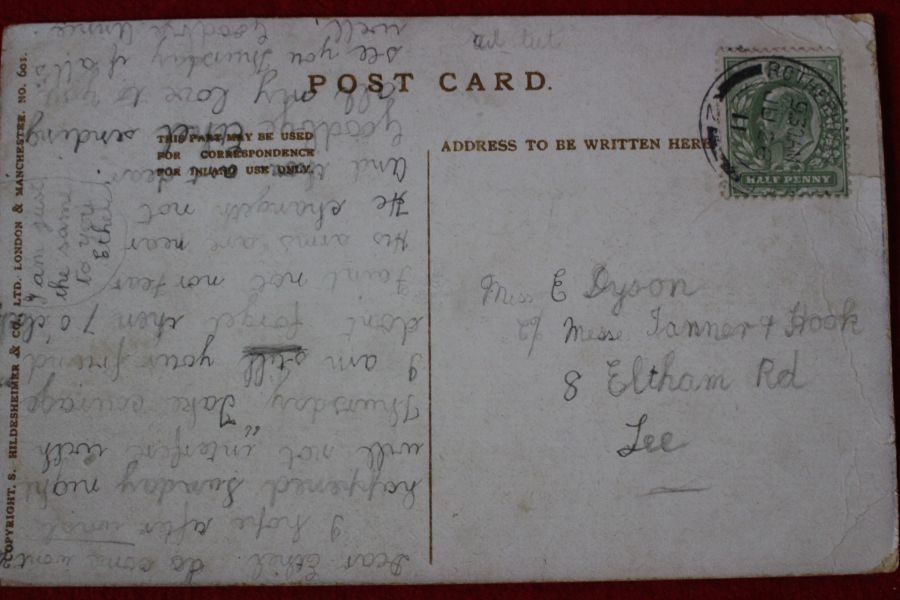 POST CARD.
THIS PART MAY BE USED
FOR CORRESPONDENCE
FOR INLAND USE ONLY.
ADDRESS TO BE WRITTEN HERE
HALF PENNY
COPYRIGHT, S. HILDESHEIMER & CO., LTD. LONDON & MANCHESTER. NO. 601.
Miss E Dyson
c/o Messe Tanner & Hook
8 Eltham Rd
Lee
Dear Ethel. do come wont
I hope after what
happened Sunday night
will not "interfere with
Thursday Take courage
I am still your friend
dont forget then 7 o'clo
Faint not nor fear
His arms are near
He changeth not
And thou art dear.
Goodbye Ethel sending
only love to you.
see you Thursday if all's
well. Goodbye Annie.
the same